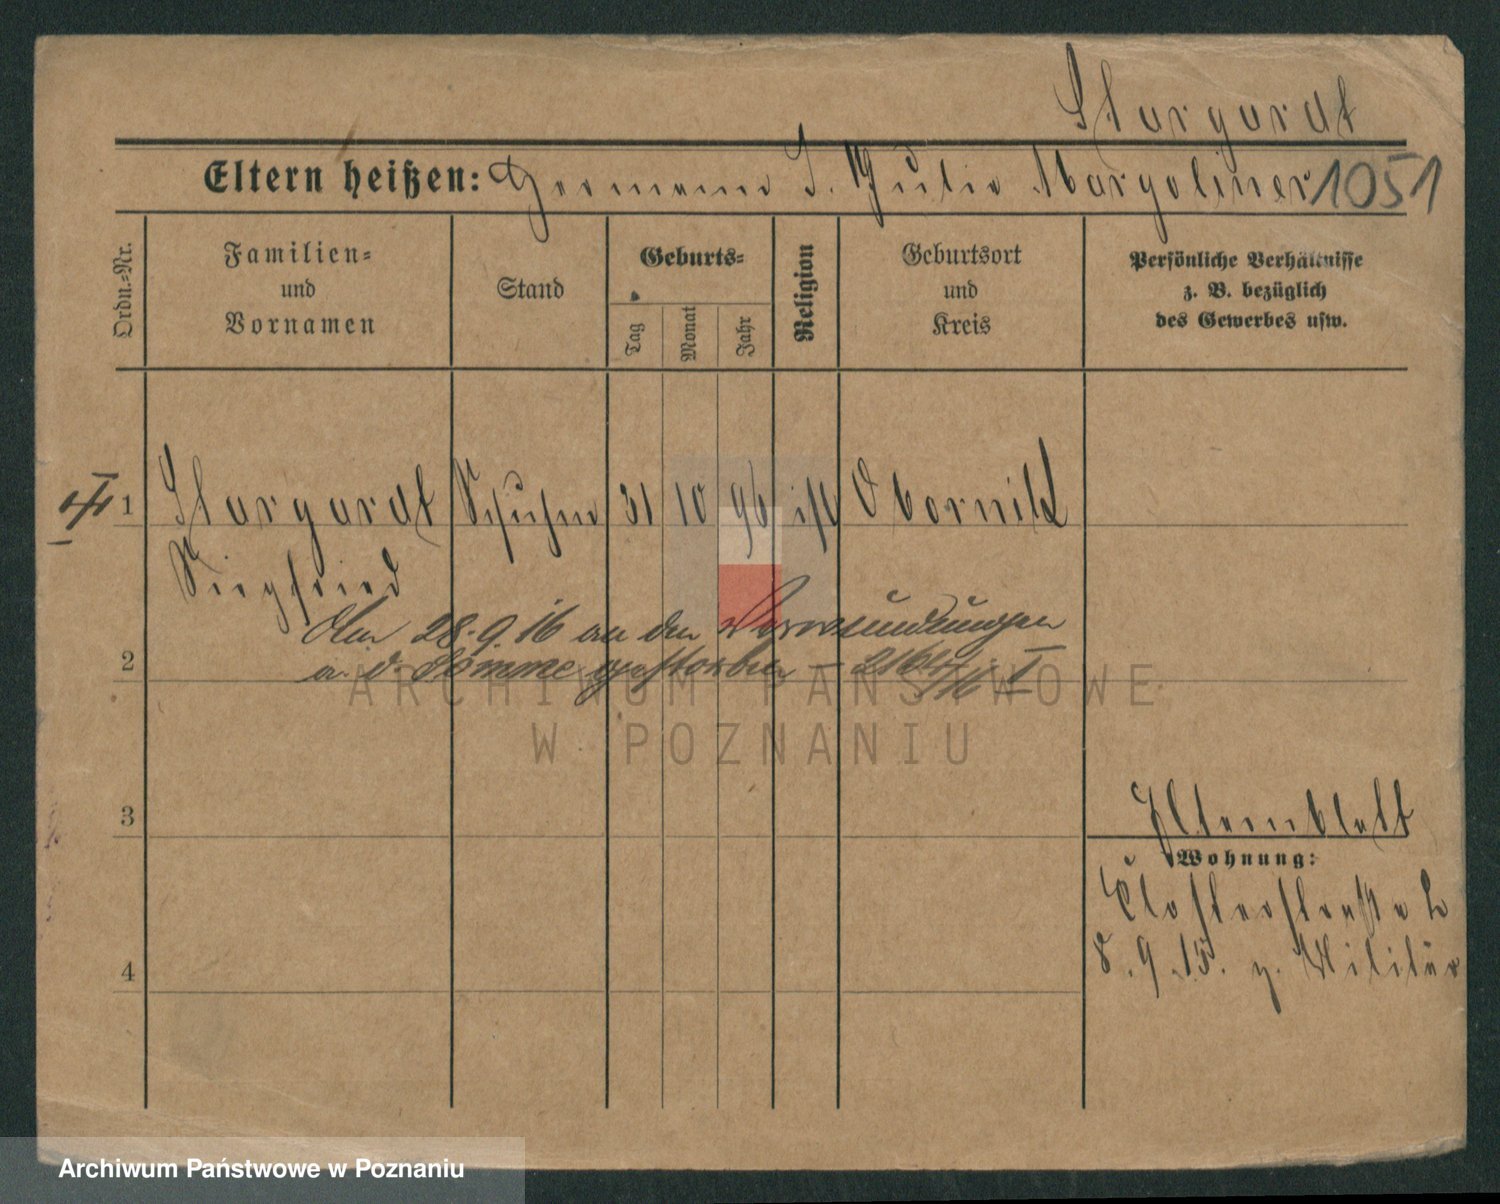 Stargardt
Eltern heißen: Hermann S. Julie Margoliner 1051
Ordn.-Nr.
Familien- und Vornamen
Stand
Geburts-
Tag
Monat
Jahr
Religion
Geburtsort und Kreis
Persönliche Verhältnisse
z. B. bezüglich
des Gewerbes usw.
1 Stargardt 31 10 96 isr Obornik
Siegfried
Am 28.9.16 an den Verwundungen
2 a. d. Somme gestorben – 2164/16 I
ARCHIWUM PAŃSTWOWE
W POZNANIU
3 Elternblatt
Wohnung:
Klosterstraße
4 8.9.15. z. Militär
Archiwum Państwowe w Poznaniu